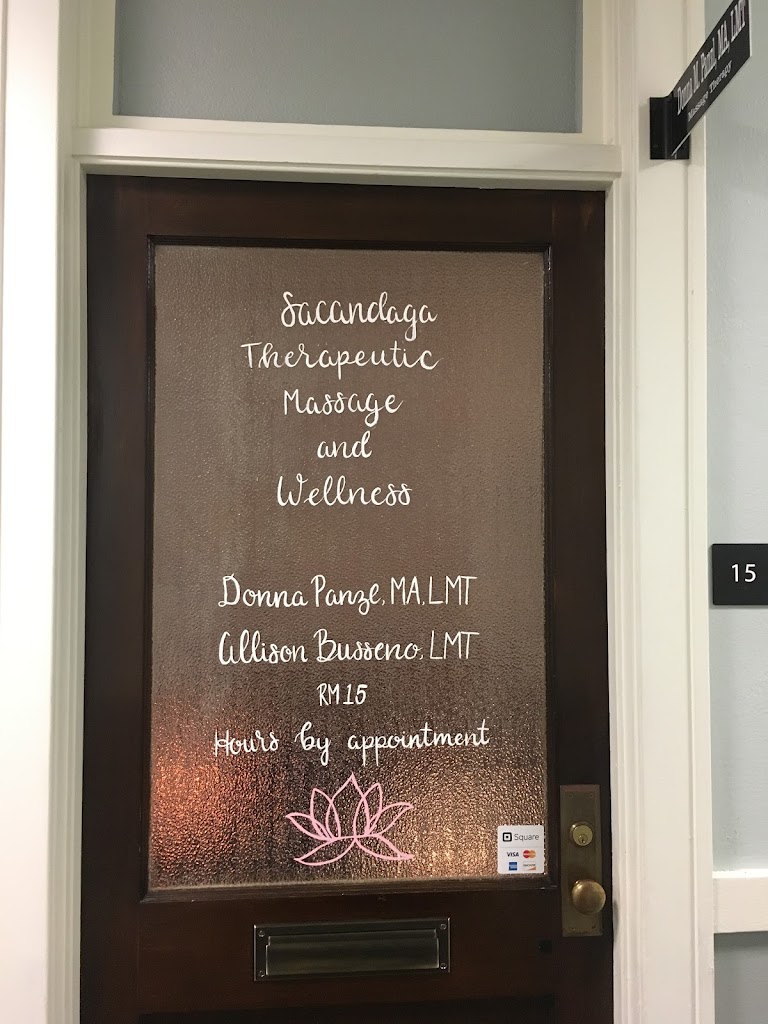 Donna M. Panzl, MA, LMT
Massage Therapy
Sacandaga
Therapeutic
Massage
and
Wellness
Donna Panzl, MA, LMT
Allison Busseno, LMT
RM 15
Hours by appointment
15
Square
VISA